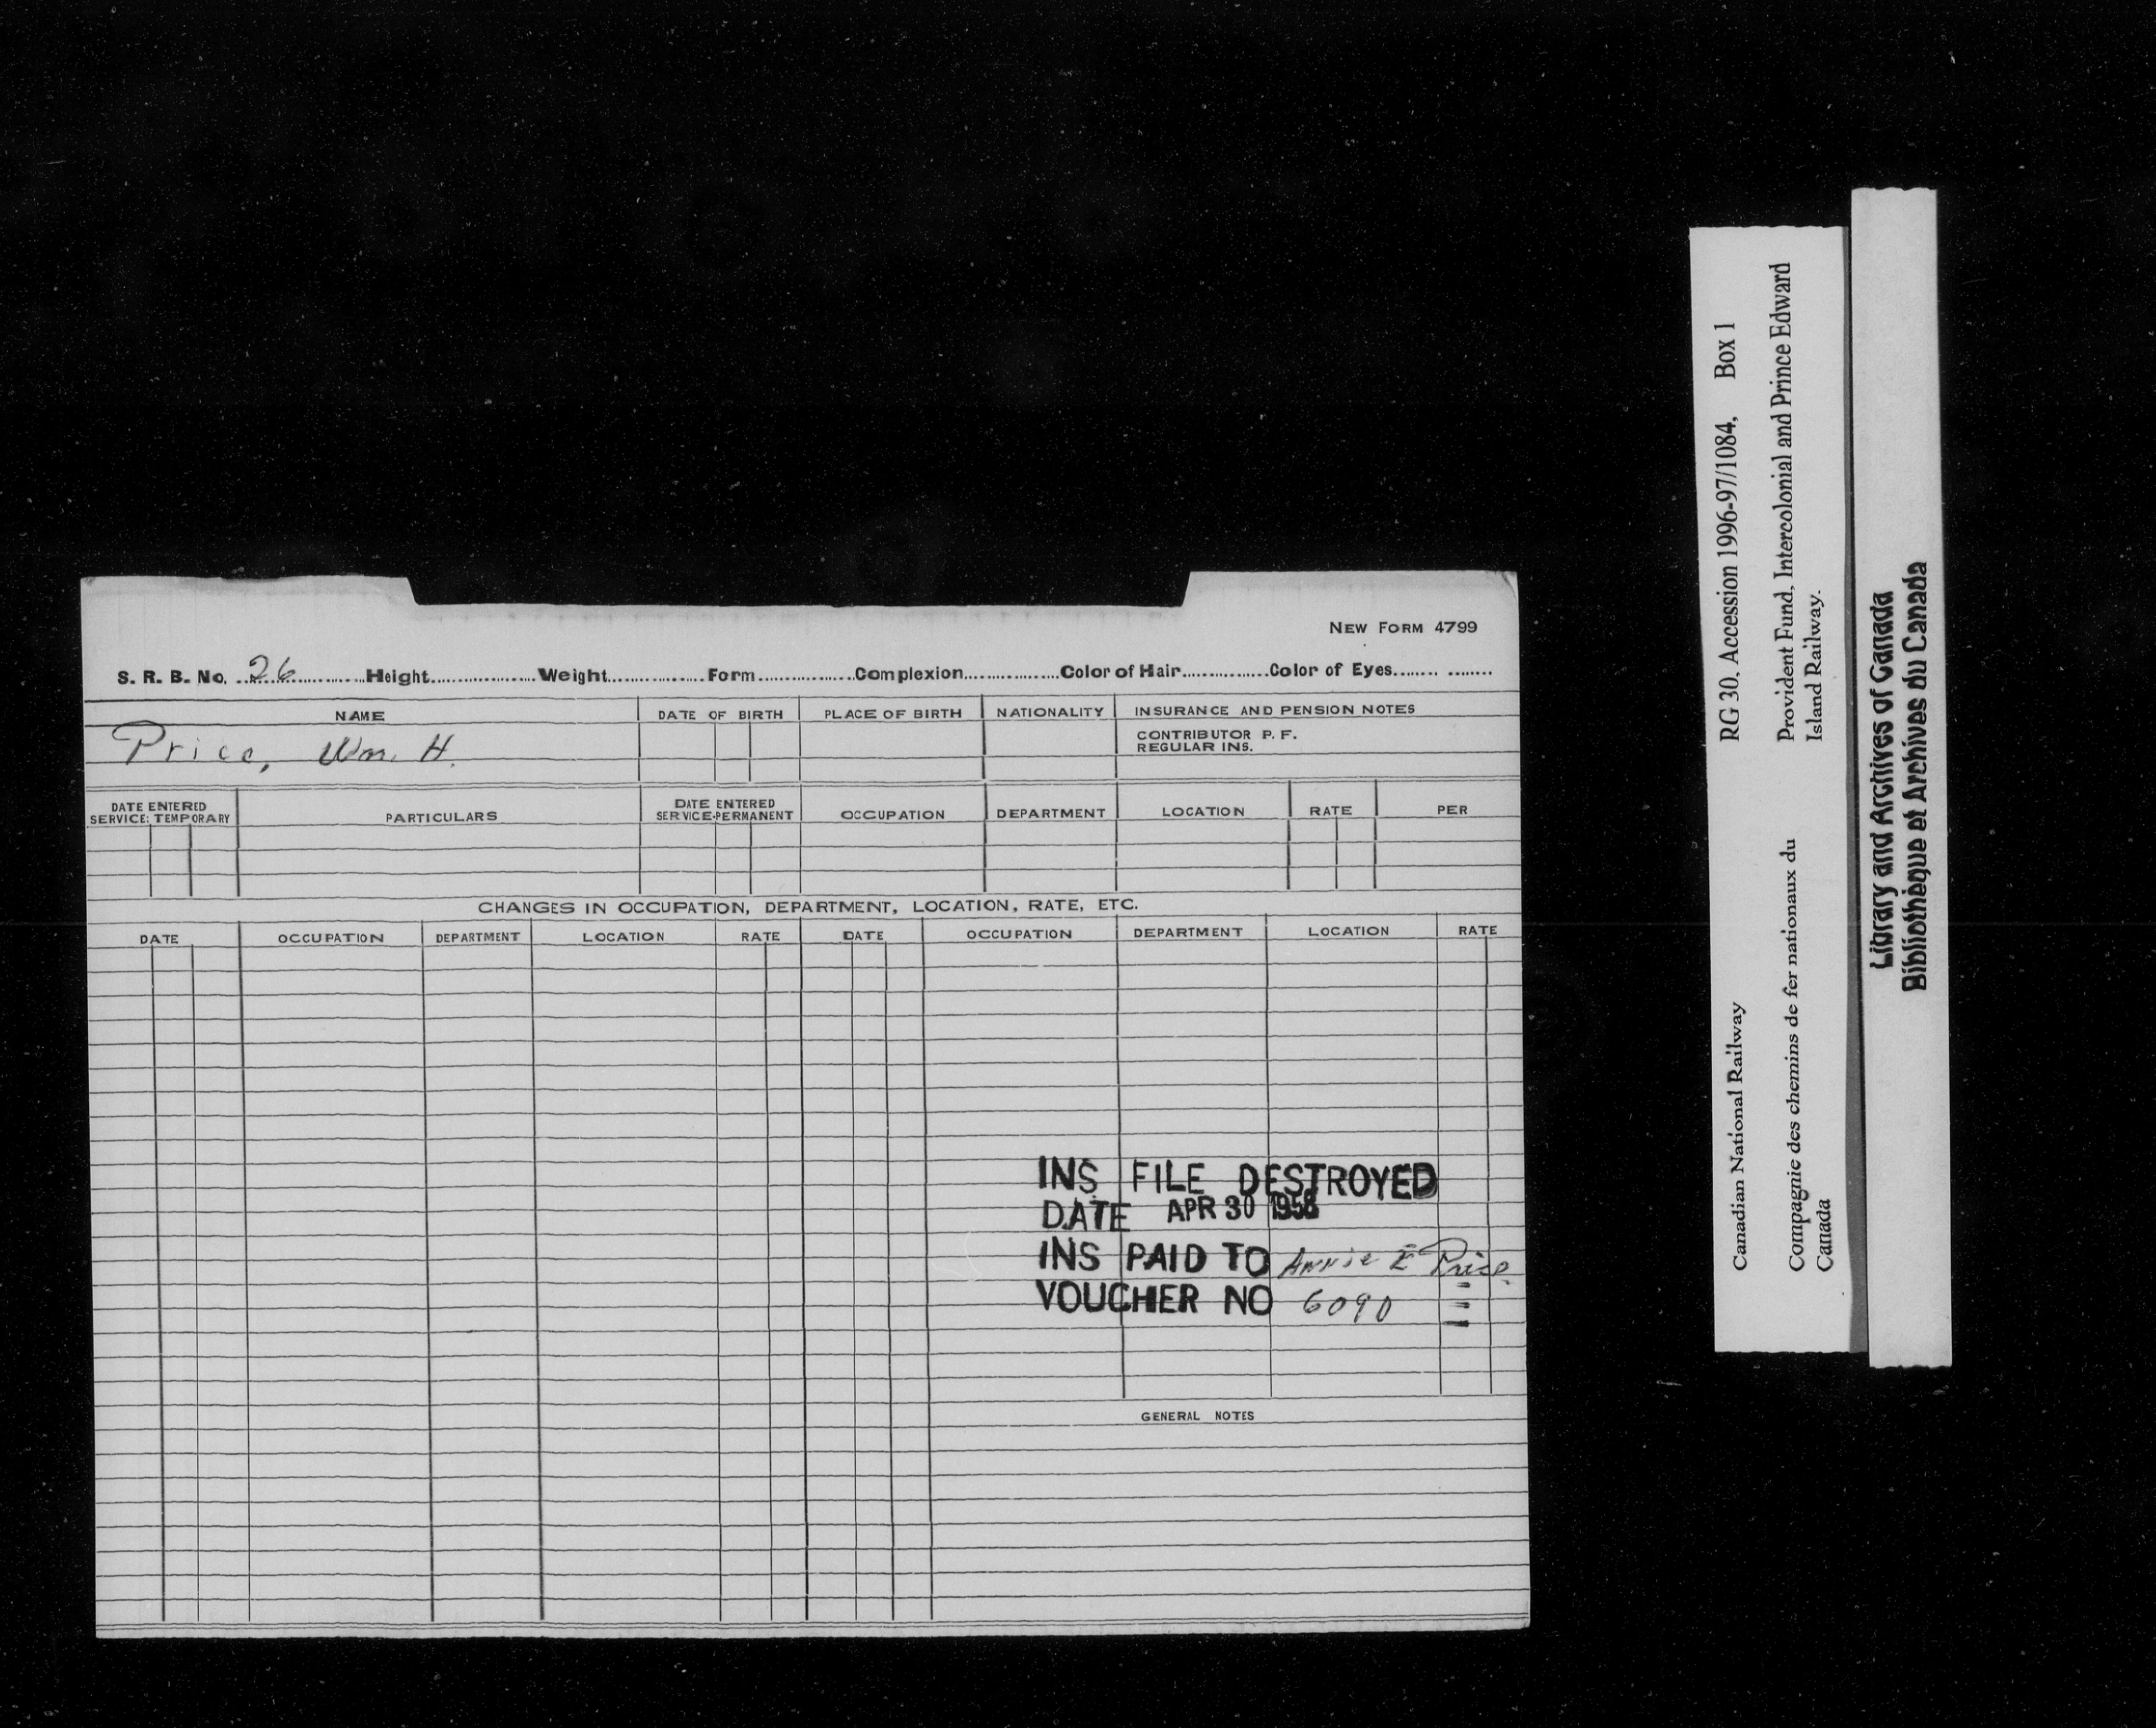 NEW FORM 4799
S. R. B. No. 26 Height Weight Form Complexion Color of Hair Color of Eyes
NAME DATE OF BIRTH PLACE OF BIRTH NATIONALITY INSURANCE AND PENSION NOTES
Price, Wm. H.
CONTRIBUTOR P. F.
REGULAR INS.
DATE ENTERED SERVICE: TEMPORARY PARTICULARS DATE ENTERED SERVICE-PERMANENT OCCUPATION DEPARTMENT LOCATION RATE PER
CHANGES IN OCCUPATION, DEPARTMENT, LOCATION, RATE, ETC.
DATE OCCUPATION DEPARTMENT LOCATION RATE DATE OCCUPATION DEPARTMENT LOCATION RATE
INS FILE DESTROYED
DATE APR 30 1958
INS PAID TO Annie E Price
VOUCHER NO 6090
GENERAL NOTES
Canadian National Railway RG 30, Accession 1996-97/1084, Box 1
Compagnie des chemins de fer nationaux du
Canada
Provident Fund, Intercolonial and Prince Edward
Island Railway.
Library and Archives of Canada
Bibliothèque et Archives du Canada